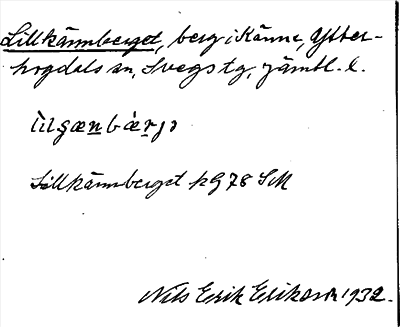 Lillkännberget, berg i Känne, Ytter-
hogdals sn, Svegs tg, Jämtl. l.
Lillkännberget hG 78 SM
Nils Erik Erikson 1932.